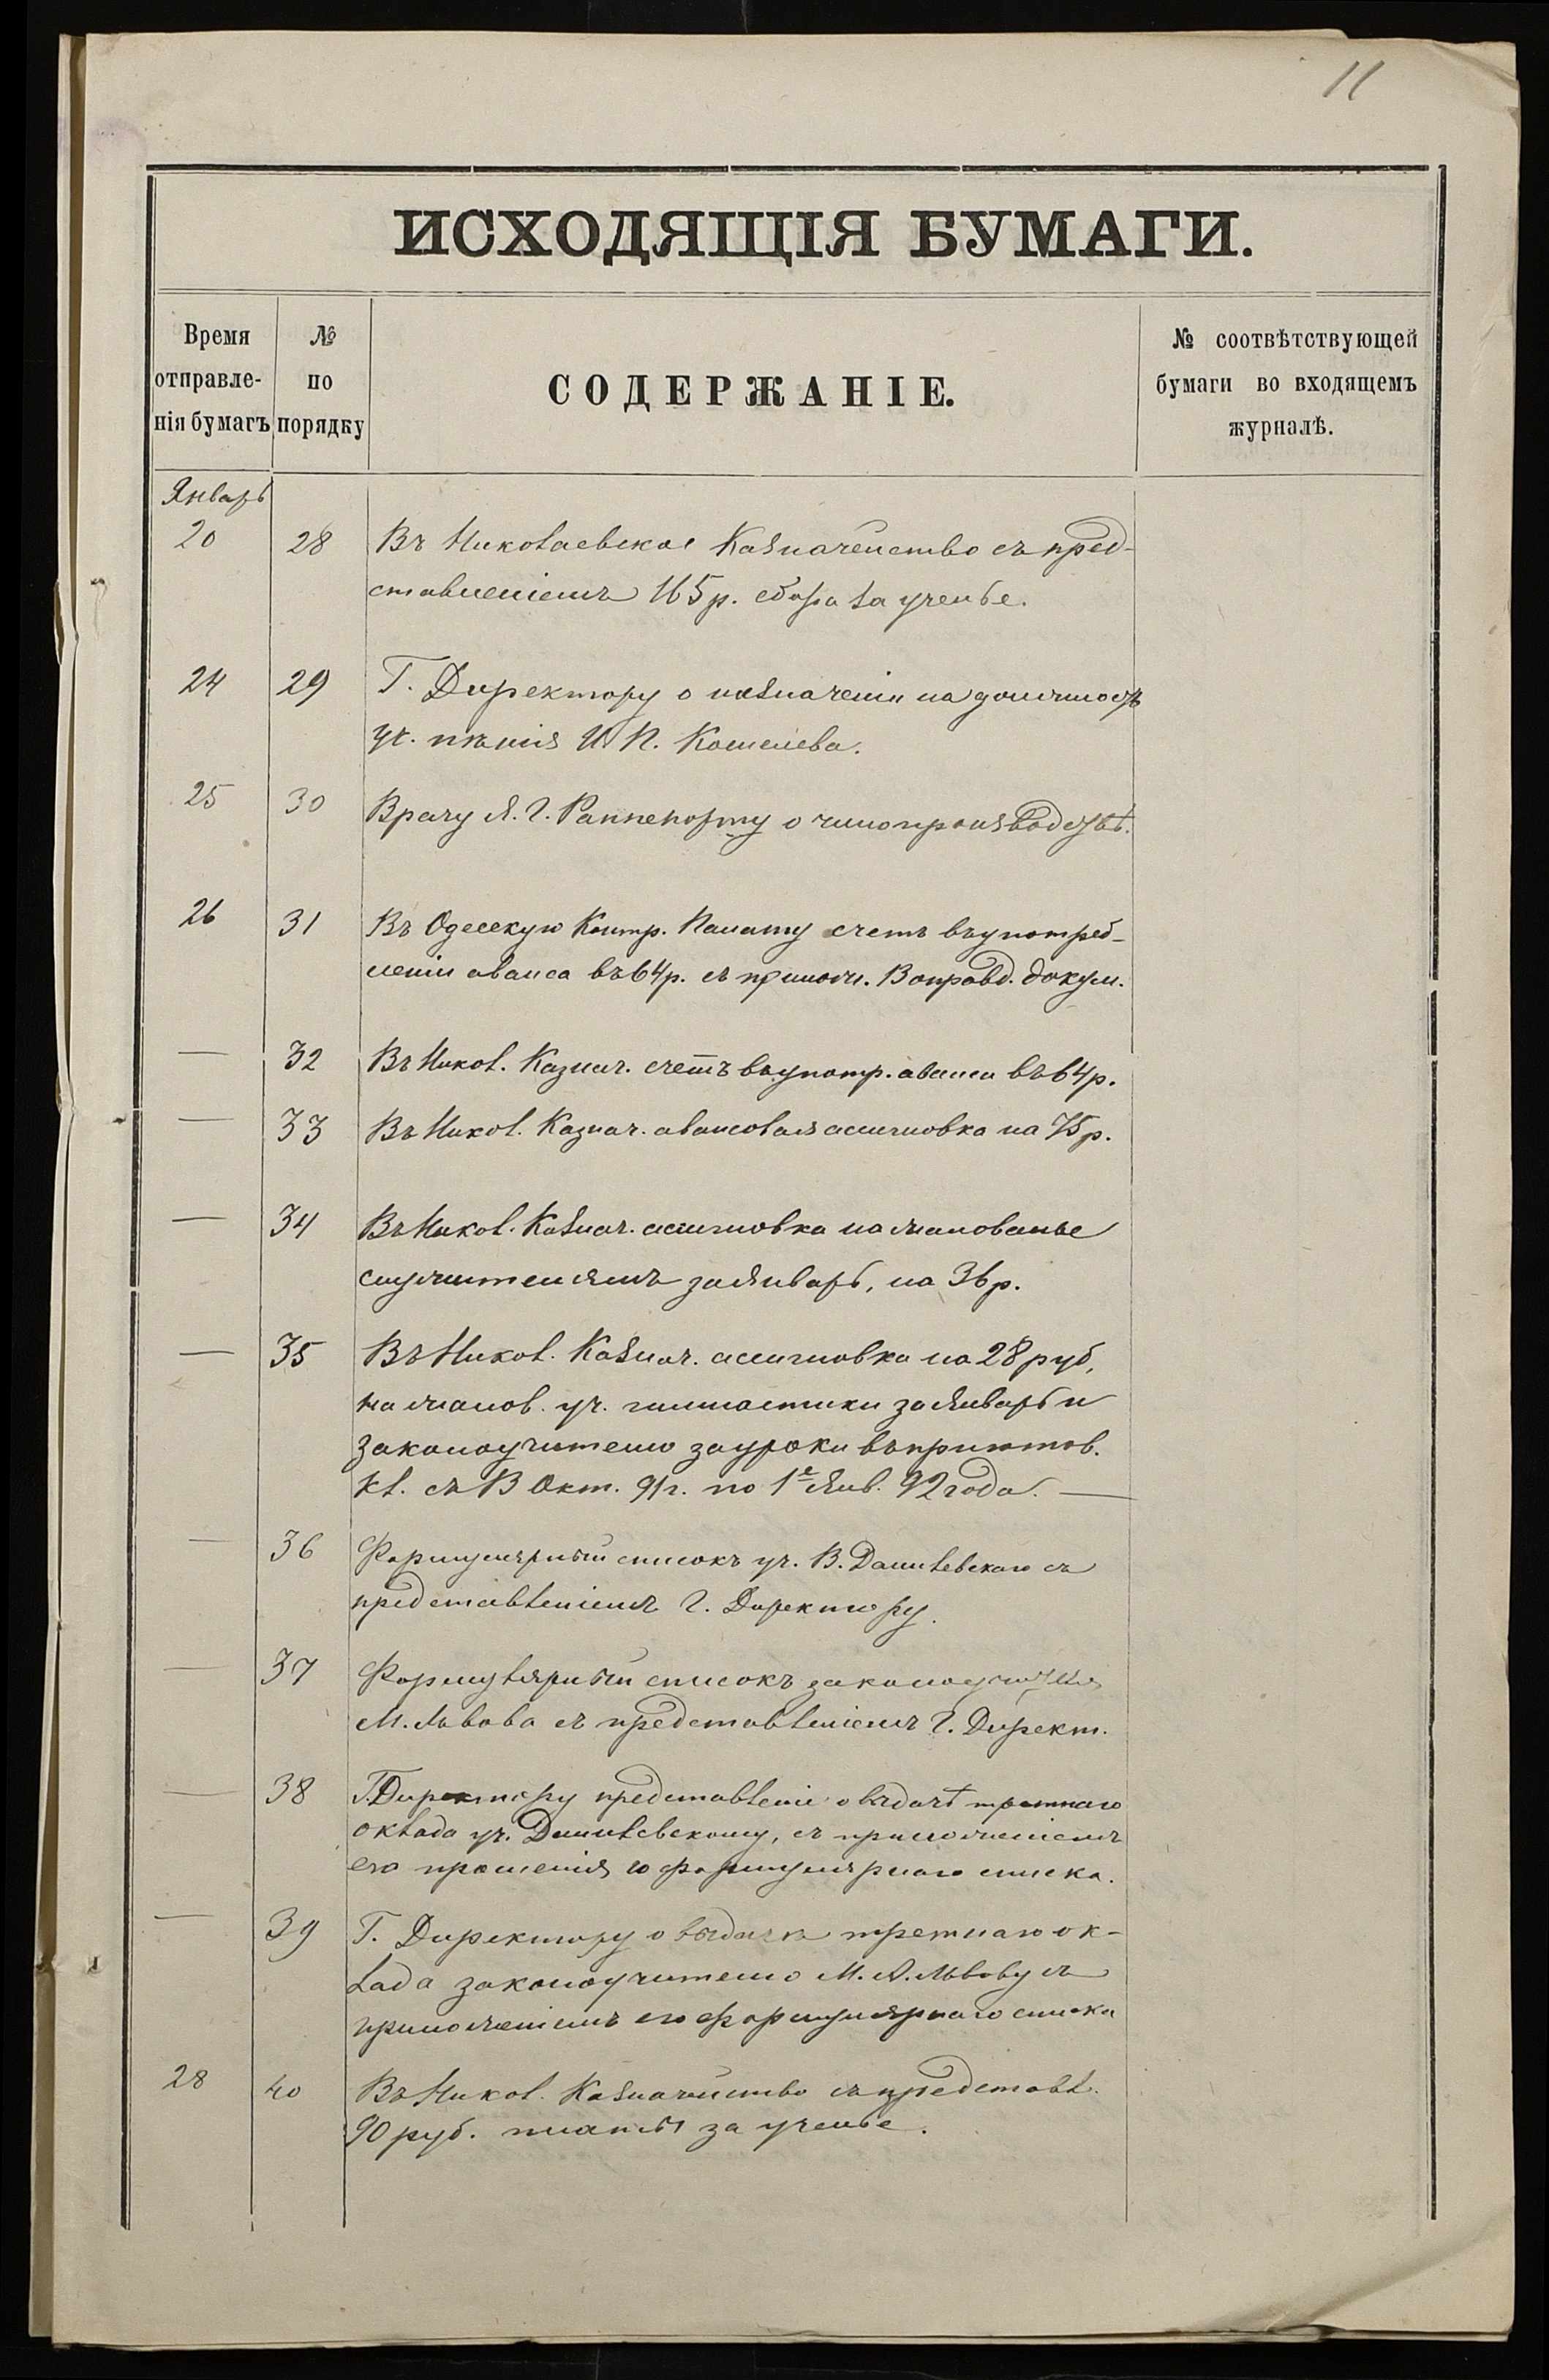 11
ИСХОДЯЩІЯ БУМАГИ.
Время
отправле-
нія бумагъ
№
по
порядку
СОДЕРЖАНІЕ.
№ соотвѣтствующей
бумаги во входящемъ
журналѣ.
Январь
20 28 Въ Николаевское Казначейство съ пред-
ставленіемъ 165 р. сбора за ученье.
24 29 Г. Директору о назначеніи на должность
уч. пѣнія И. П. Кошелева.
25 30 Врачу Я. Г. Раппепорту о чинопроизводствѣ.
26 31 Въ Одесскую Контр. Палату счетъ въ употреб-
леніи аванса въ 64 р. съ прилож. 13 оправд. докум.
— 32 Въ Никол. Казнач. счетъ въ употр. аванса въ 64 р.
— 33 Въ Никол. Казнач. авансовая ассигновка на 75 р.
— 34 Въ Никол. Казнач. ассигновка на жалованье
служителямъ за Январь, на 36 р.
— 35 Въ Никол. Казнач. ассигновка на 28 руб,
на жалов. уч. гимнастики за Январь и
законоучителю за уроки въ пригот.
кл. съ 13 Окт. 91 г. по 1е Янв. 92 года. —
— 36 Формулярный списокъ уч. В. Данилевскаго съ
представленіемъ Г. Директору.
— 37 Формулярный списокъ законоучителя
М. Львова съ представленіемъ Г. Директ.
— 38 Г. Директору представленіе о выдачѣ третнаго
оклада уч. Данилевскому, съ приложеніемъ
его прошенія и формулярнаго списка.
— 39 Г. Директору о выдачѣ третнаго ок-
лада законоучителю М. А. Львову съ
приложеніемъ его формулярнаго списка
28 40 Въ Никол. Казначейство съ представл.
90 руб. платы за ученье.